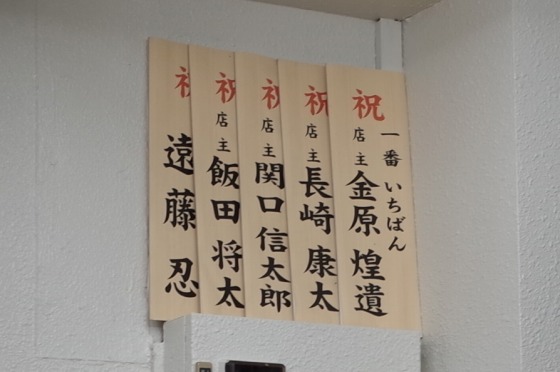 祝
一番 いちばん
店主 金原煌遺
祝
店主 長崎康太
祝
店主 関口信太郎
祝
店主 飯田将太
祝
遠藤忍